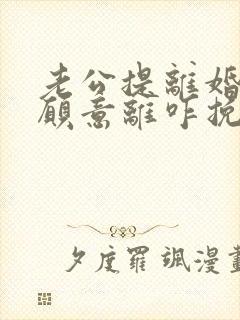 老公提離婚
願意離咋挽
夕度羅颯漫畫